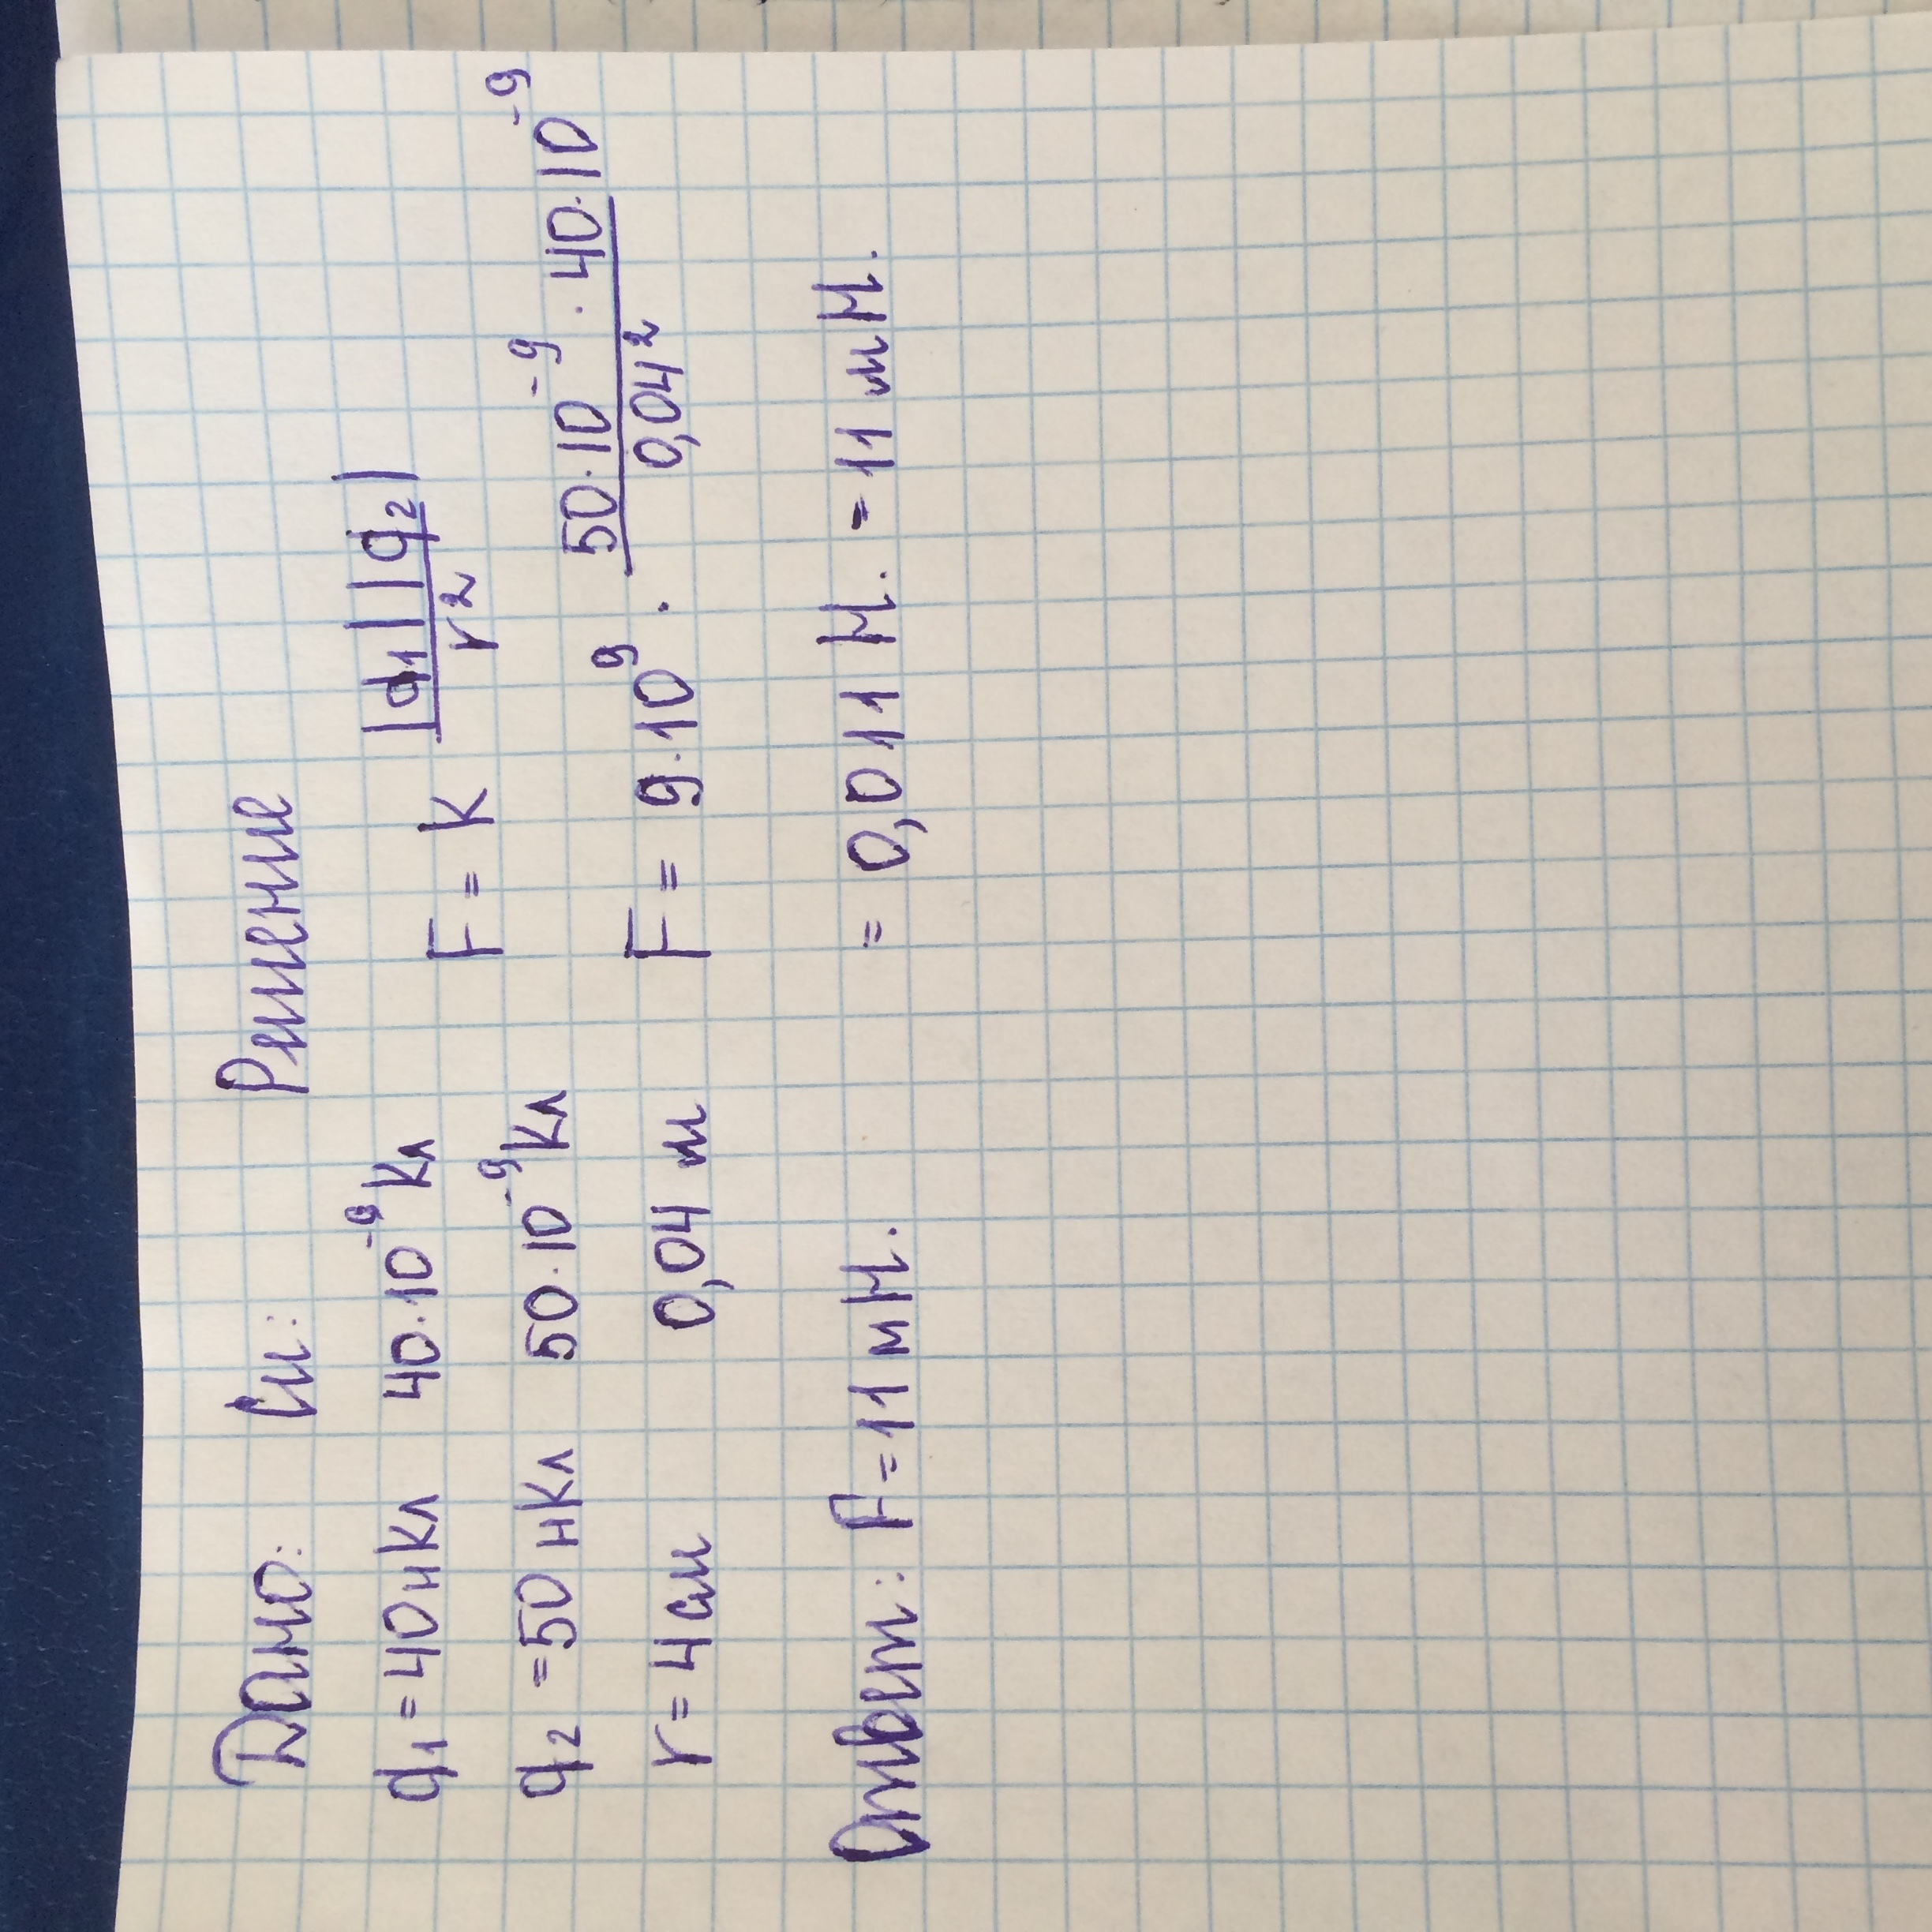 Дано: Си: Решение
q₁ = 40 нКл 40·10⁻⁹ Кл F = K |q₁||q₂| / r²
q₂ = 50 нКл 50·10⁻⁹ Кл
r = 4 см 0,04 м F = 9·10⁹ · 50·10⁻⁹ · 40·10⁻⁹ / 0,04²
= 0,011 Н. = 11 мН.
Ответ: F = 11 мН.